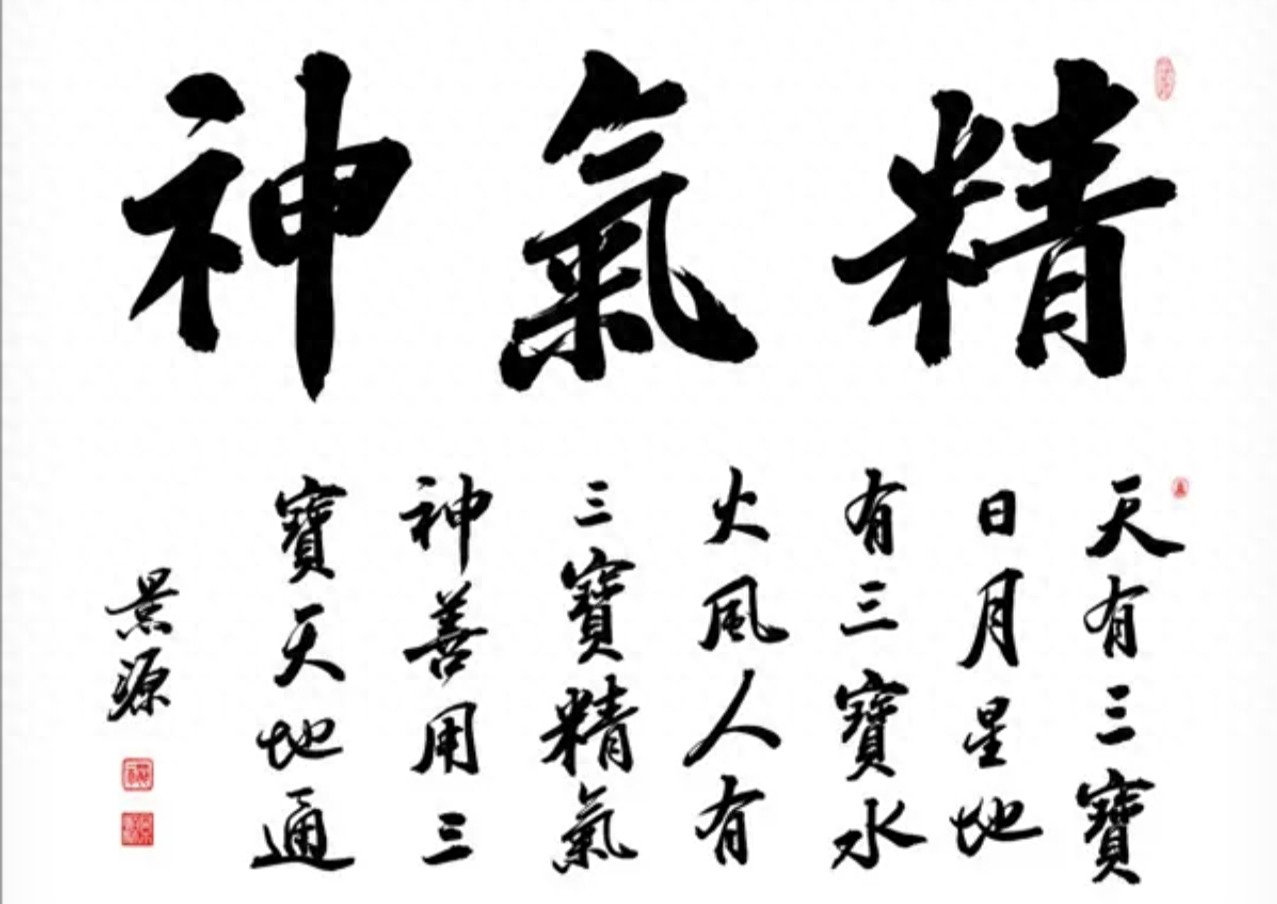 精氣神
天有三寶
日月星地
有三寶水
火風人有
三寶精氣
神善用三
寶天地通
景源